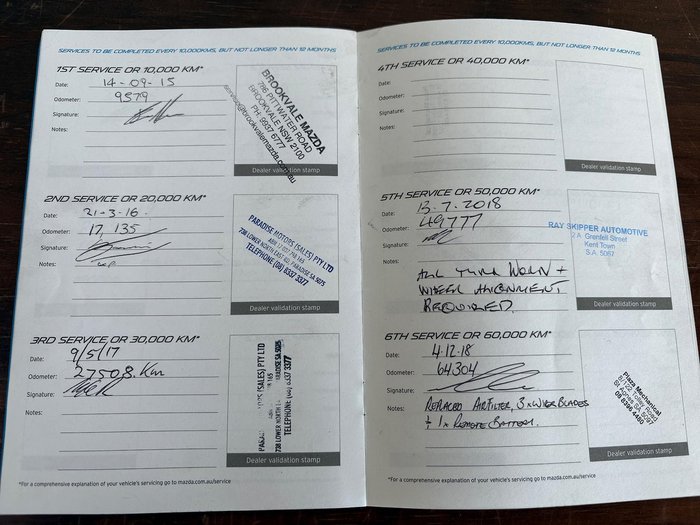 SERVICES TO BE COMPLETED EVERY 10,000KMS, BUT NOT LONGER THAN 12 MONTHS
1ST SERVICE OR 10,000 KM*
Date: 14-09-15
Odometer: 9579
Signature:
Notes:
BROOKVALE MAZDA
PITTWATER ROAD
BROOKVALE NSW 2100
PH: 9937 6777
service@brookvalemazda.com.au
Dealer validation stamp
2ND SERVICE OR 20,000 KM*
Date: 21-3-16.
Odometer: 17,135
Signature:
Notes:
PARADISE MOTORS (SALES) PTY LTD
738 LOWER NORTH EAST RD, PARADISE SA 5075
TELEPHONE (08) 8337 3377
Dealer validation stamp
3RD SERVICE OR 30,000 KM*
Date: 9/5/17
Odometer: 27508. Km
Signature:
Notes:
(SALES) PTY LTD
738 LOWER NORTH PARADISE SA 5075
TELEPHONE 8337 3377
Dealer validation stamp
*For a comprehensive explanation of your vehicle's servicing go to mazda.com.au/service
SERVICES TO BE COMPLETED EVERY 10,000KMS, BUT NOT LONGER THAN 12 MONTHS
4TH SERVICE OR 40,000 KM*
Date:
Odometer:
Signature:
Notes:
Dealer validation stamp
5TH SERVICE OR 50,000 KM*
Date: 13.7.2018
Odometer: 49777
Signature:
Notes: ALL TYRES WORN +
WHEEL ALIGNMENT
REQUIRED.
RAY SKIPPER AUTOMOTIVE
2 A Grenfell Street
Kent Town
S.A. 5067
Dealer validation stamp
6TH SERVICE OR 60,000 KM*
Date: 4.12.18
Odometer: 64304
Signature:
Notes: REPLACED AIRFILTER, 3x WIPER BLADES
+ 1x REMOTE BATTERY.
Plaza Mechanical
St Agnes SA 5097
08 8396 4480
Dealer validation stamp
*For a comprehensive explanation of your vehicle's servicing go to mazda.com.au/service